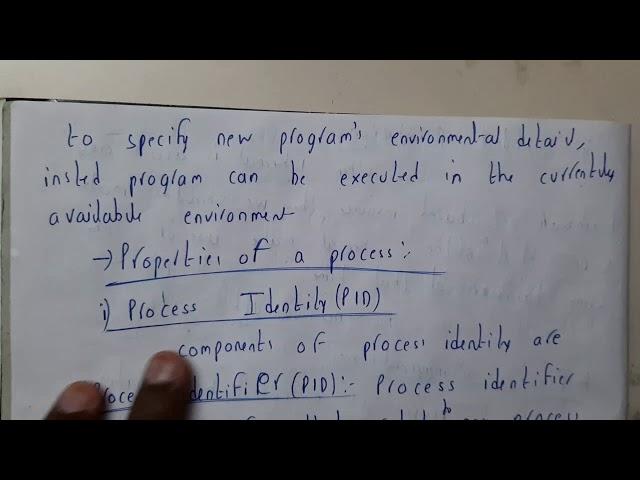 to specify new program's environmental details,
insted program can be executed in the currently
available environment
→ Properties of a process:-
i) Process Identity (PID)
components of process identity are
Process identifier (PID):- Process identifier
to process